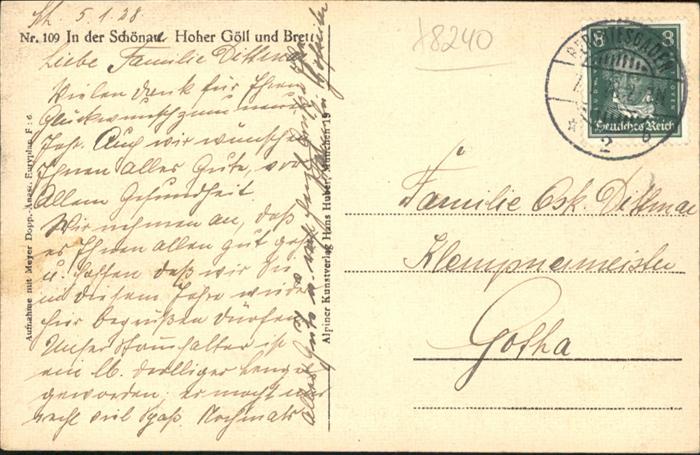 Sch. 5.1.28
Nr. 109 In der Schönau Hoher Göll und Brett
Liebe Familie Dittmar
Vielen Dank für Ihren
Glückwunsch zum neuen
Jahr. Auch wir wünschen
Ihnen alles Gute, vor
allem Gesundheit
Wir nehmen an, daß
es Ihnen allen gut geht
u. hoffen daß wir Sie
in diesem Jahre wieder
hier begrüßen dürfen
Unser Stammhalter ist
ein lb. drolliger Bengel
geworden; er macht uns
recht viel Spaß. Nochmals
alles Gute u.
Aufnahme mit Meyer Dopp.-Anast. Euryplan F : 6
Alpiner Kunstverlag Hans Huber, München 19
18240
BERCHTESGADEN
2
8 8
Deutsches Reich
Familie Osk. Dittmar
Klempnermeister
Gotha